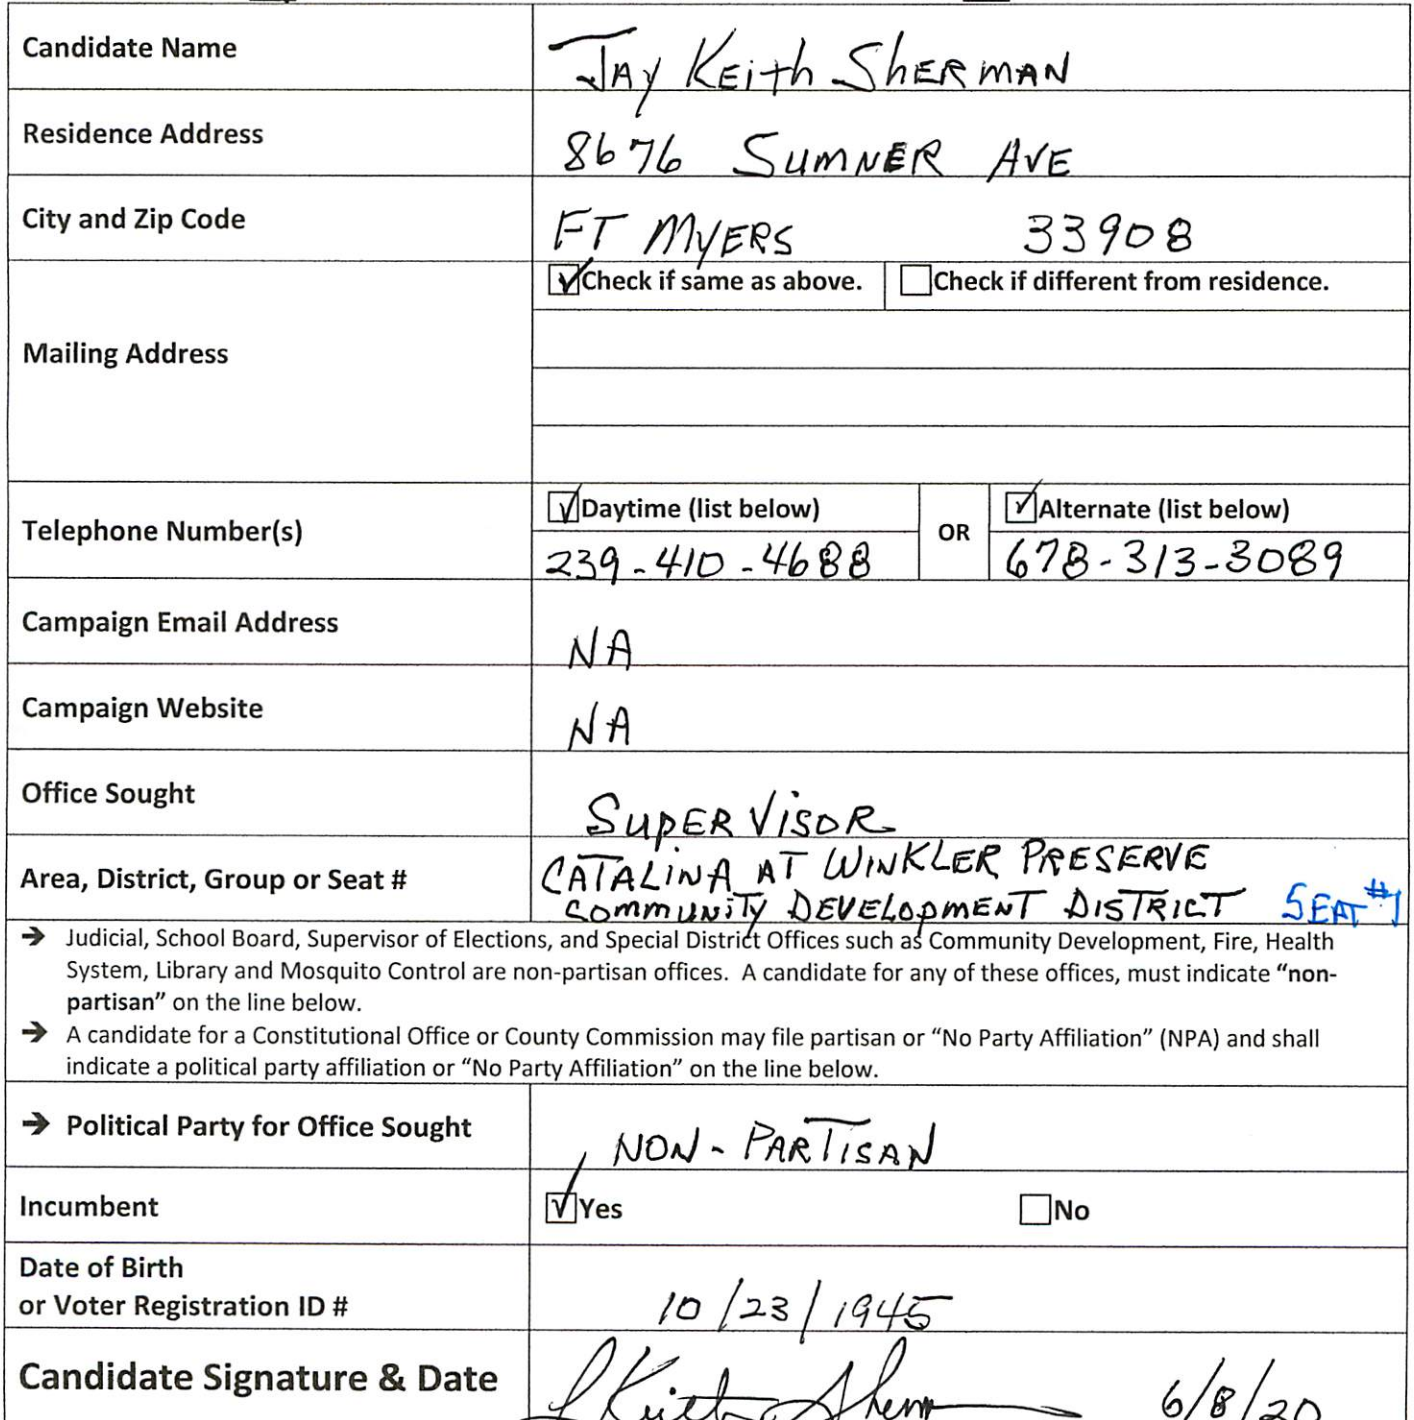 Candidate Name
JAY KEith ShERMAN
Residence Address
8676 SUMNER AVE
City and Zip Code
FT MYERS 33908
Check if same as above. Check if different from residence.
Mailing Address
Daytime (list below) Alternate (list below)
Telephone Number(s) OR
239-410-4688 678-313-3089
Campaign Email Address
NA
Campaign Website
NA
Office Sought
SupERVisOR
Area, District, Group or Seat #
CATALINA AT WINKLER PRESERVE
COMMUNITY DEVELOPMENT DISTRICT SEAT #1
➔ Judicial, School Board, Supervisor of Elections, and Special District Offices such as Community Development, Fire, Health
System, Library and Mosquito Control are non-partisan offices. A candidate for any of these offices, must indicate “non-
partisan” on the line below.
➔ A candidate for a Constitutional Office or County Commission may file partisan or “No Party Affiliation” (NPA) and shall
indicate a political party affiliation or “No Party Affiliation” on the line below.
➔ Political Party for Office Sought
NON-PARTISAN
Incumbent Yes No
Date of Birth
or Voter Registration ID # 10/23/1945
Candidate Signature & Date J Keith Sherm 6/8/20